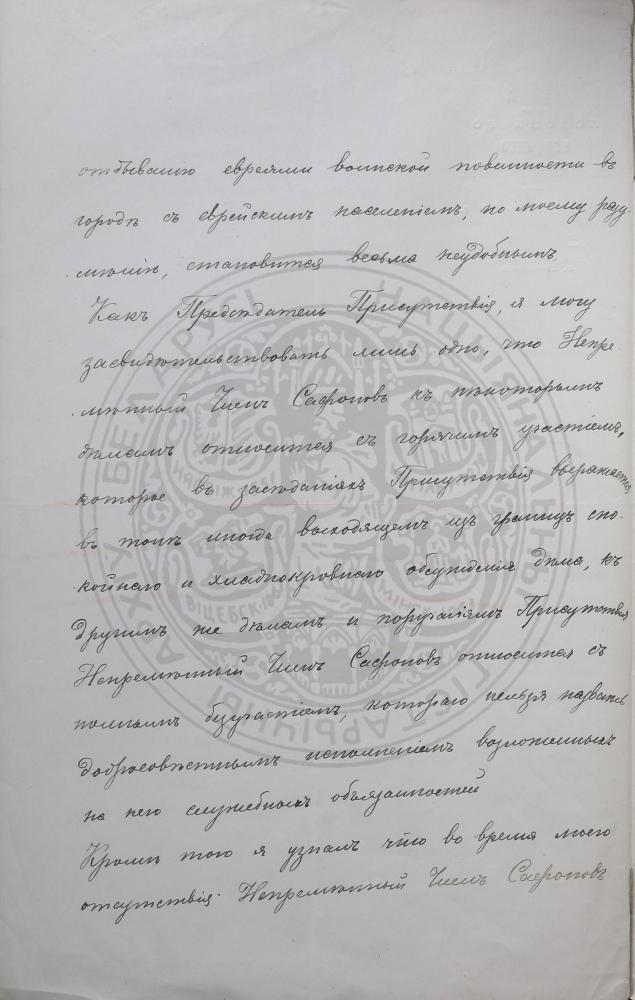 отбыванію евреями воинской повинности въ
городѣ съ еврейскимъ населеніемъ, по моему разу
мѣнію, становится весьма неудобнымъ
Какъ Предсѣдатель Присутствія, я могу
засвидѣтельствовать лишь одно, что Непре
мѣнный Членъ Сафроновъ къ нѣкоторымъ
дѣламъ относится съ горячимъ участіемъ,
которое въ засѣданіяхъ Присутствія выражается
въ тонѣ иногда выходящемъ изъ границъ спо
койнаго и хладнокровнаго обсужденія дѣла, къ
другимъ же дѣламъ и порученіямъ Присутствія
Непремѣнный Членъ Сафроновъ относится съ
полнымъ безучастіемъ, котораго нельзя назвать
добросовѣстнымъ исполненіемъ возложенныхъ
на него служебныхъ обязанностей
Кромѣ того я узналъ что во время моего
отсутствія Непремѣнный Членъ Сафроновъ